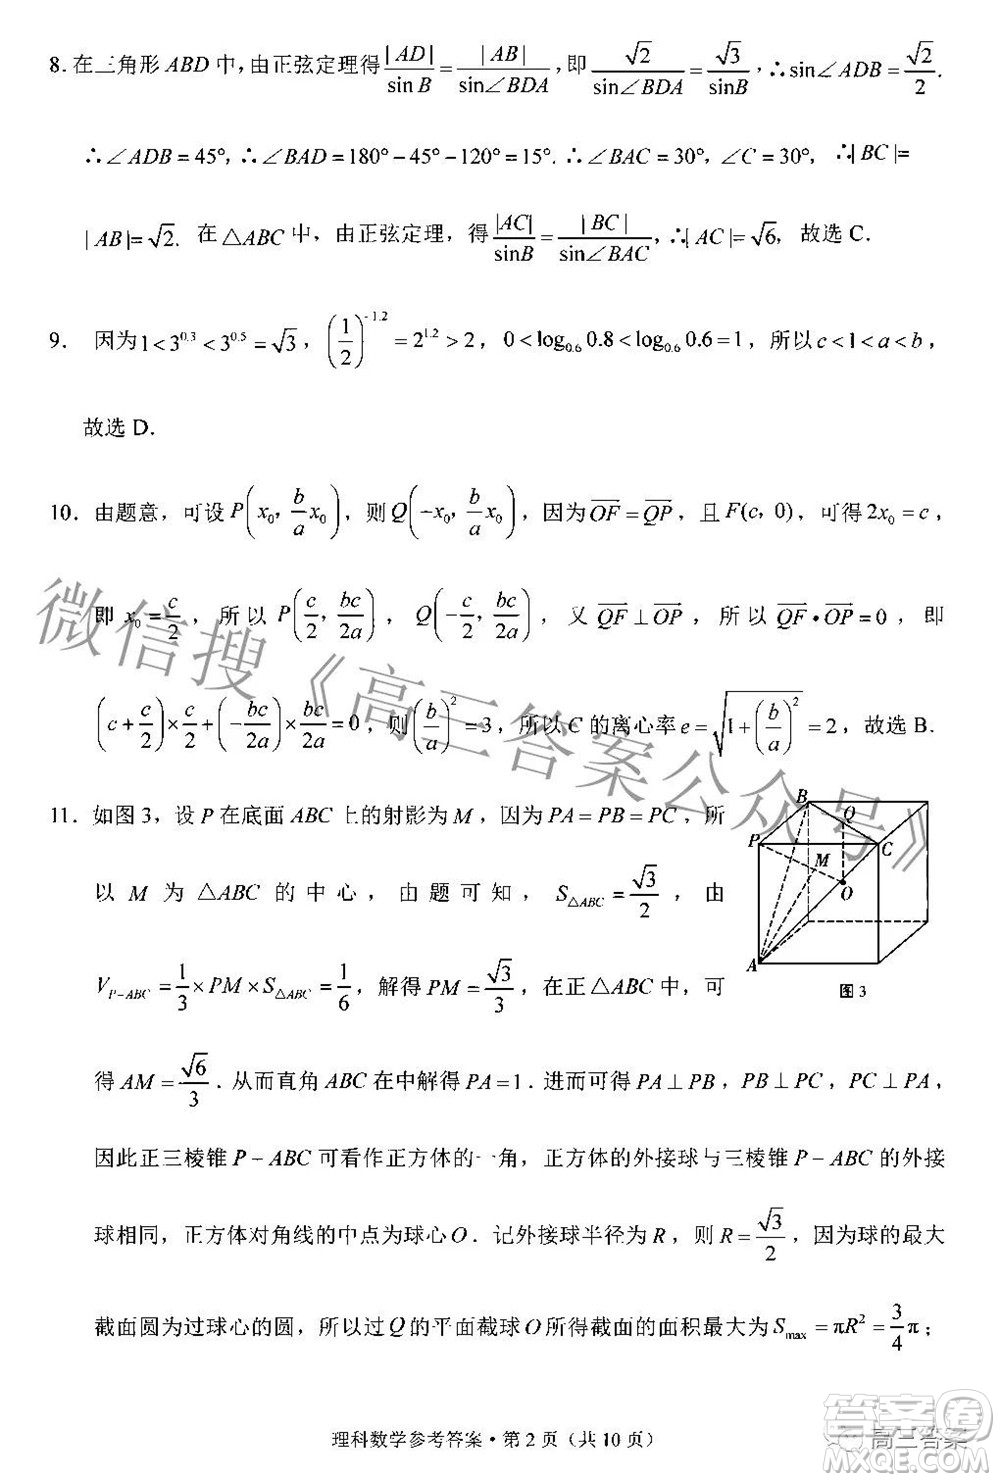 8. 在三角形 ABD 中，由正弦定理得 |AD|/sin B = |AB|/sin∠BDA，即 √2/sin∠BDA = √3/sinB，∴sin∠ADB = √2/2.
∴∠ADB = 45°，∴∠BAD = 180° − 45° − 120° = 15°. ∴∠BAC = 30°，∠C = 30°，∴|BC|=
|AB| = √2. 在△ABC 中，由正弦定理，得 |AC|/sinB = |BC|/sin∠BAC，∴|AC| = √6，故选 C.
9. 因为 1 < 3^0.3 < 3^0.5 = √3，(1/2)^−1.2 = 2^1.2 > 2，0 < log_0.6 0.8 < log_0.6 0.6 = 1，所以 c < 1 < a < b，
故选 D.
10. 由题意，可设 P(x₀, b/a x₀)，则 Q(−x₀, b/a x₀)，因为 OF = QP，且 F(c, 0)，可得 2x₀ = c，
即 x₀ = c/2，所以 P(c/2, bc/2a)，Q(−c/2, bc/2a)，又 QF ⊥ OP，所以 QF • OP = 0，即
(c + c/2) × c/2 + (−bc/2a) × bc/2a = 0，则 (b/a)² = 3，所以 C 的离心率 e = √(1 + (b/a)²) = 2，故选 B.
11. 如图 3，设 P 在底面 ABC 上的射影为 M，因为 PA = PB = PC，所
以 M 为 △ABC 的中心，由题可知，S△ABC = √3/2，由
V P−ABC = 1/3 × PM × S△ABC = 1/6，解得 PM = √3/3，在正△ABC 中，可
B
Q
P
C
M
O
A
图 3
得 AM = √6/3. 从而直角 ABC 在中解得 PA = 1. 进而可得 PA ⊥ PB，PB ⊥ PC，PC ⊥ PA，
因此正三棱锥 P − ABC 可看作正方体的一角，正方体的外接球与三棱锥 P − ABC 的外接
球相同，正方体对角线的中点为球心 O. 记外接球半径为 R，则 R = √3/2，因为球的最大
截面圆为过球心的圆，所以过 Q 的平面截球 O 所得截面的面积最大为 S max = πR² = 3/4 π；
理科数学参考答案 • 第 2 页（共 10 页）
微信搜《高三答案公众号》
高三答案
答案圈
MXQE.COM